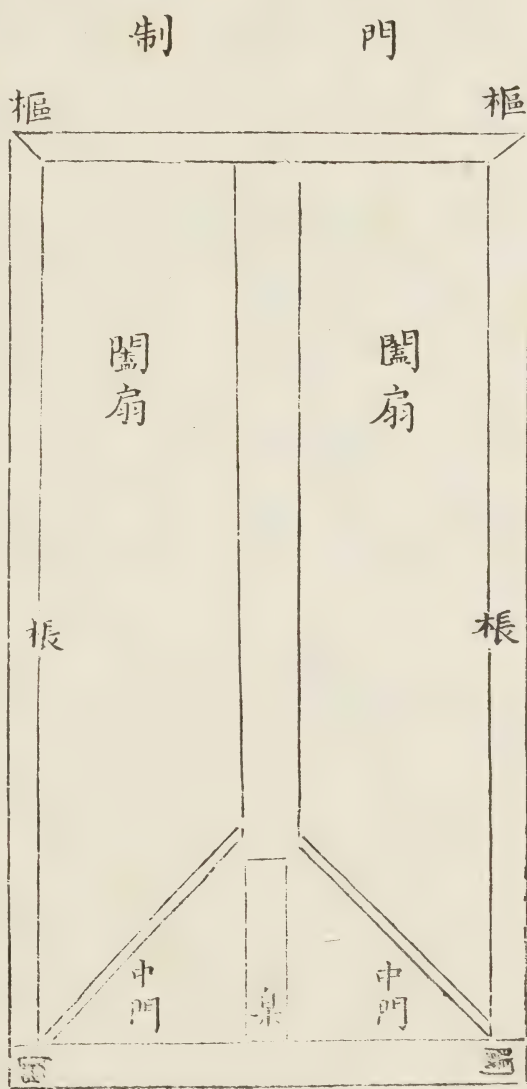 門制
樞
樞
闔扇
闔扇
棖
棖
中門
臬
中門
閾
閾